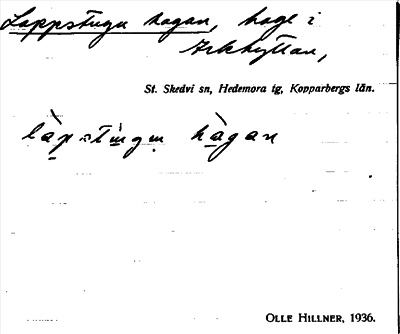 Lappstugu hagan, hage i
Arkhyttan,
St. Skedvi sn, Hedemora tg, Kopparbergs län.
OLLE HILLNER, 1936.